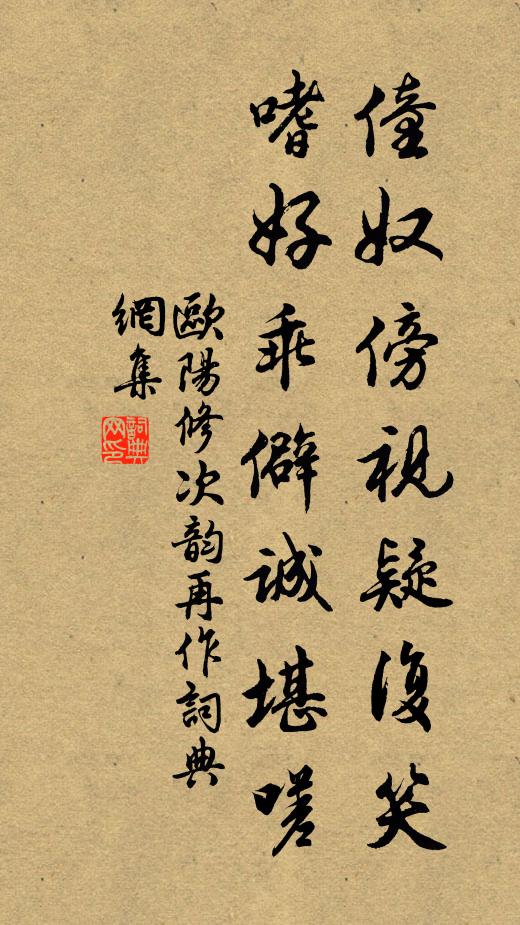 僮奴傍視疑復笑
嗜好乖僻誠堪嗟
歐陽修次韵再作詞典
網集
詞典
网印